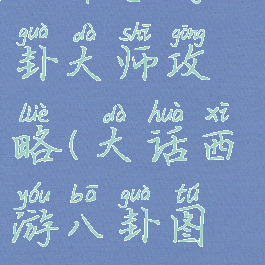 guà dà shī gōng
卦大师攻
lüè dà huà xī
略(大话西
yóu bā guà tú
游八卦图